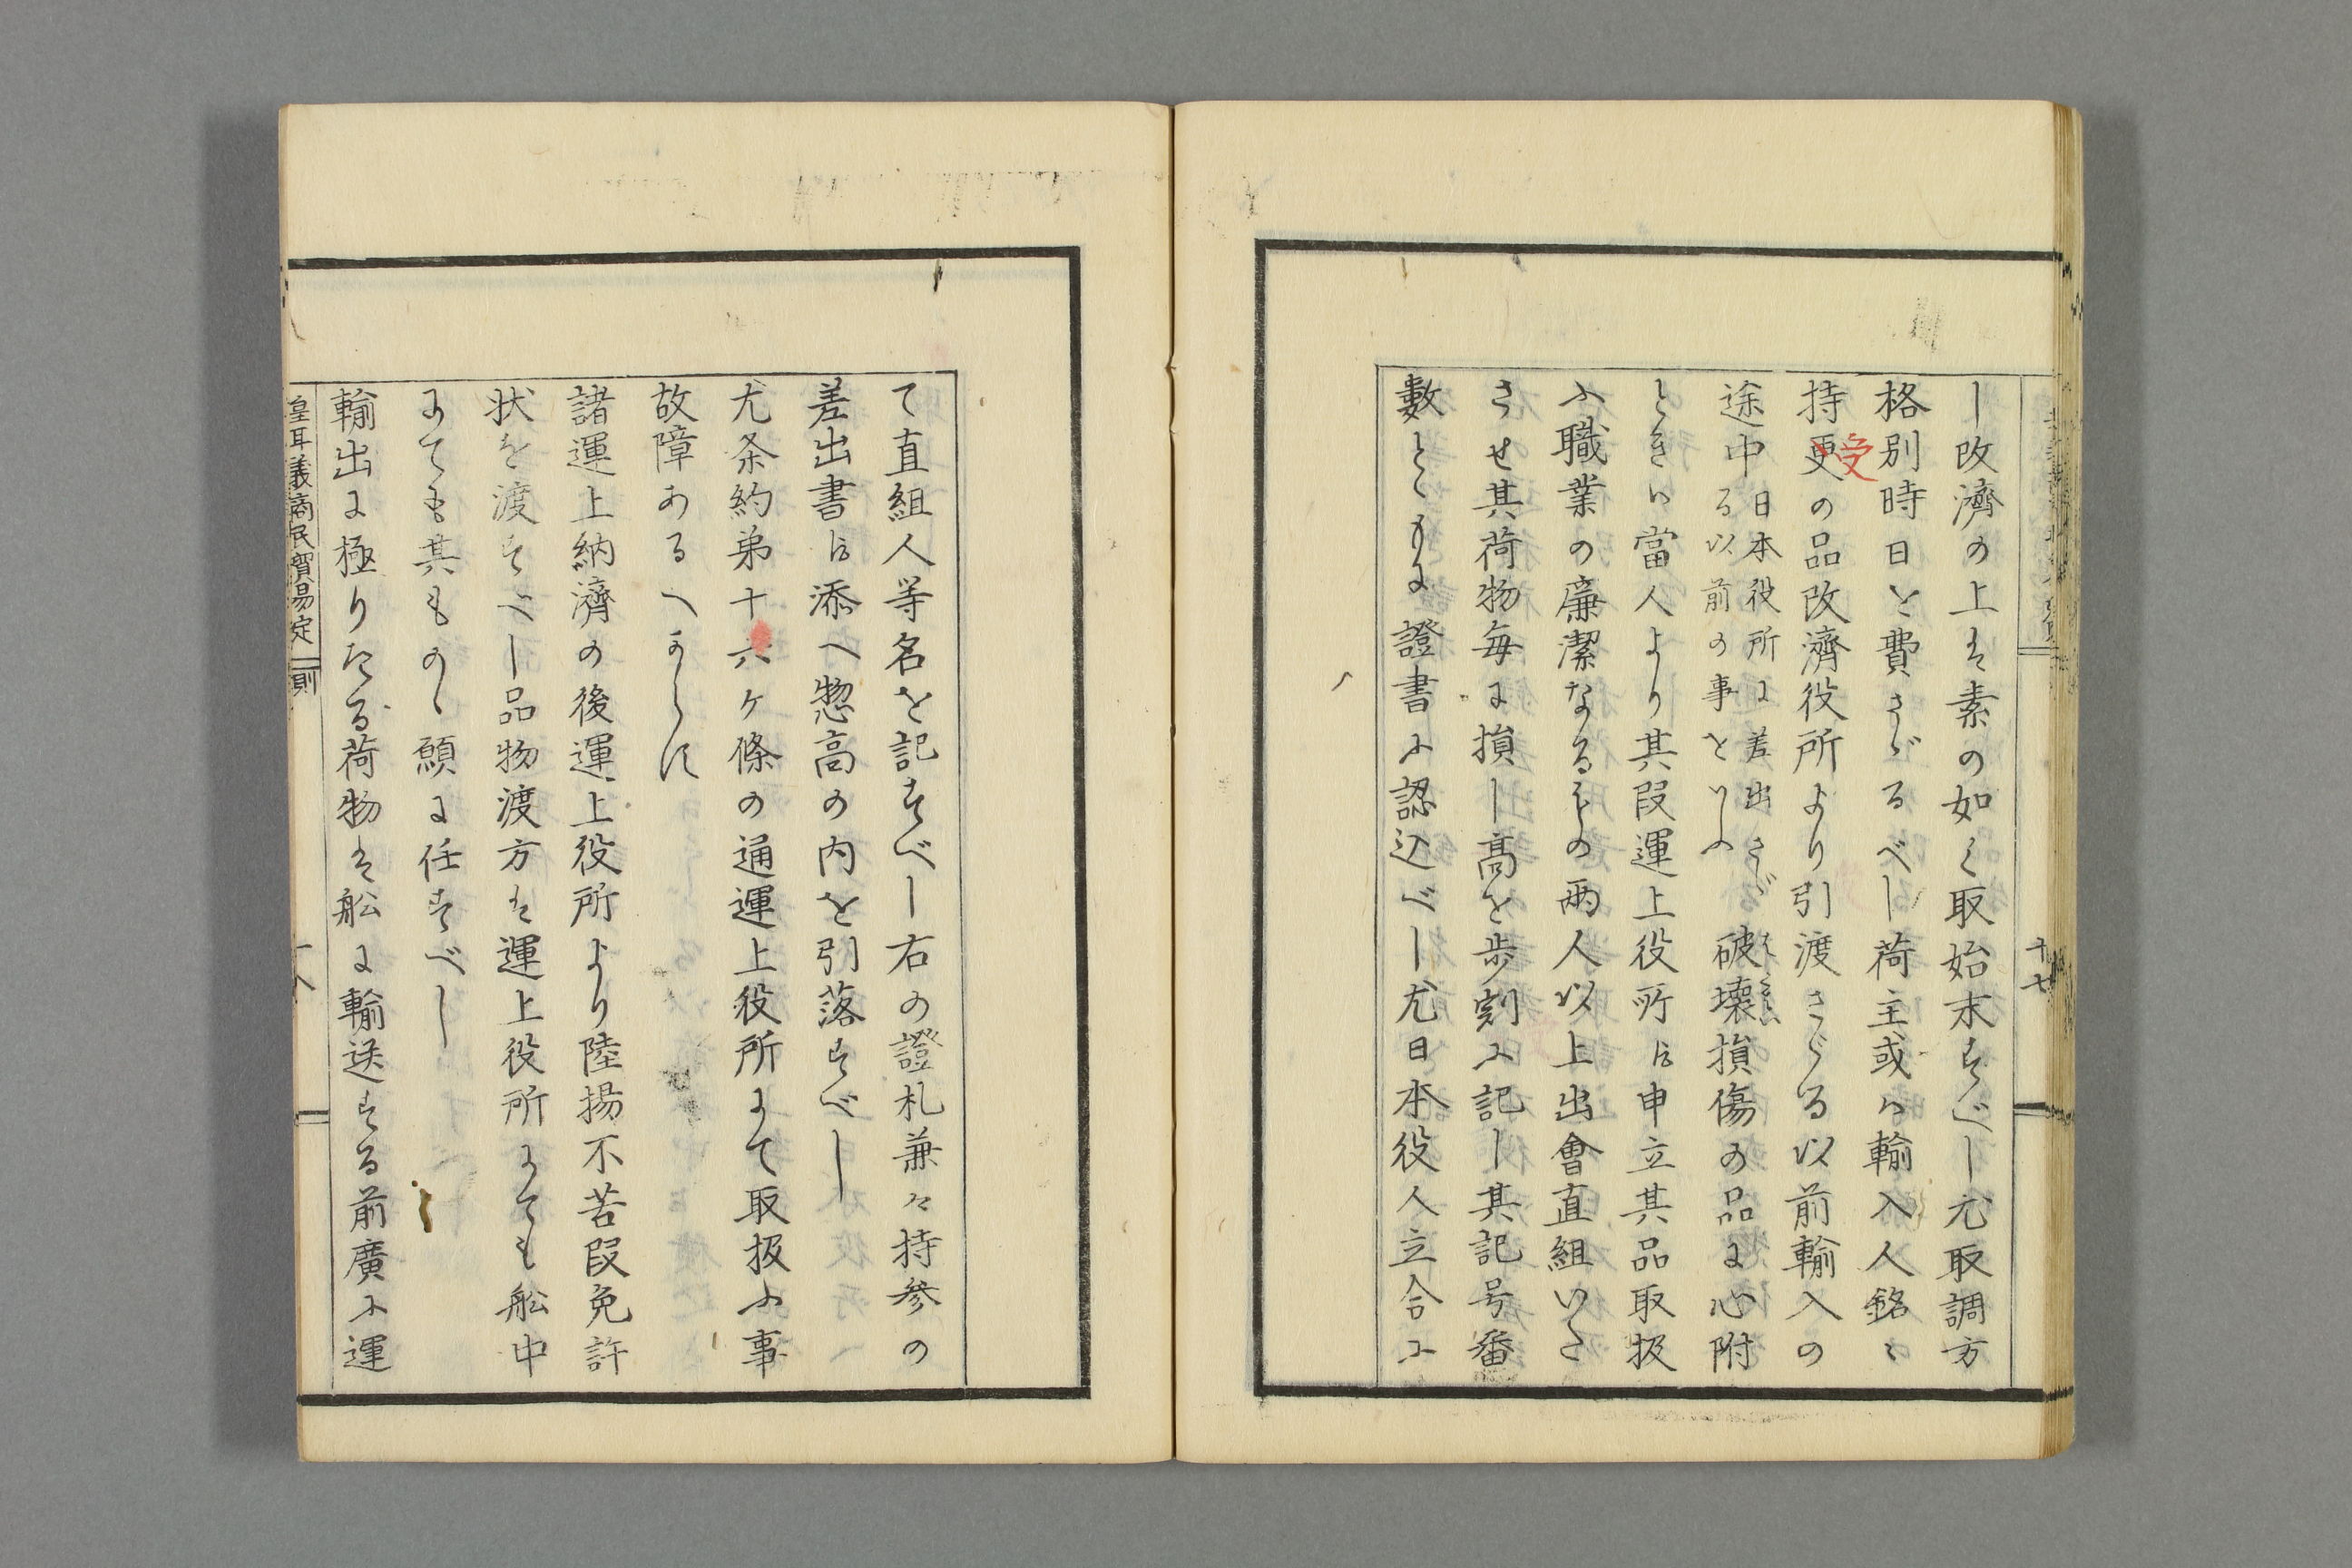 十七
し改濟の上は素の如く取始末すべし尤取調方
格別時日を費さゞるべし荷主或は輸入人銘〻
持更の品改濟役所より引渡さゞる以前輸入の
受
途中
日本役所に差出さゞ
る以前の事をいふ
破壊損傷の品に心附
ときは當人より其段運上役所に申立其品取扱
ふ職業の廉潔なるもの兩人以上出會直組いた
させ其荷物毎に損し高を歩割に記し其記号番
數ともに證書に認込べし尤日本役人立合に
て直組人等名を記すべし右の證札兼々持参の
差出書に添へ惣高の内を引落すべし
尤条約第十六ヶ條の通運上役所にて取扱ふ事
故障あるへからす
諸運上納濟の後運上役所より陸揚不苦段免許
状を渡すべし品物渡方は運上役所にても舩中
にても其ものゝ願に任すべし
輸出に極りたる荷物は舩に輸送する前廣に運
皇耳義商民貿易定則
十八